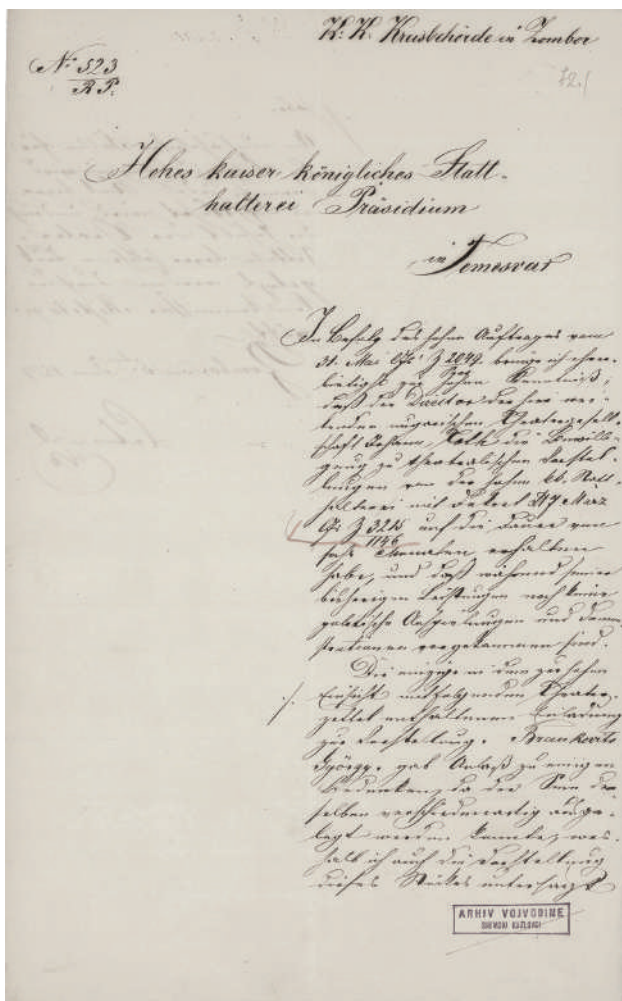 K: K. Kreisbehörde in Zombor
No 523
R P.
72.
Hohes kaiser königliches Statt-
halterei Präsidium
in Temesvar
In Befolg des hohen Auftrages vom
31. Mai l J: Z 2049 bringe ich ehrer-
bietigst zur hohen Kenntniß,
daß der Director der hier wei-
lenden ungarischen Theatergesell-
schaft Johann die Bewilli-
gung zu theatralischen Vorstel-
lungen von der hohen kk. Statt-
halterei mit Dekret März
l J: Z 3215 auf die Dauer von
1146
sechs Monaten erhalten
habe, und daß während seiner
bisherigen Leistungen noch keine
politische Anspielungen und Demon-
strationen vorgekommen sind.
Die einzige in dem zur hohen
./. Einsicht mitfolgenden Theater-
zettel enthaltenen Einladung
zur Vorstellung. Brankovits
György. gab Anlaß zu einigen
Bedenken, da der Sinn der-
selben verschiedenartig ausge-
legt werden konnte, wes-
halb ich auch die Vorstellung
dieses Stückes untersagt
ARHIV VOJVODINE